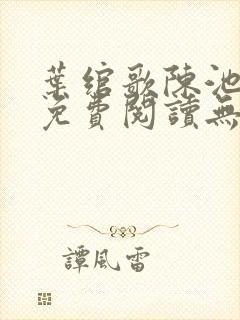 葉綰歌陳池
免費閱讀無
譚風雷